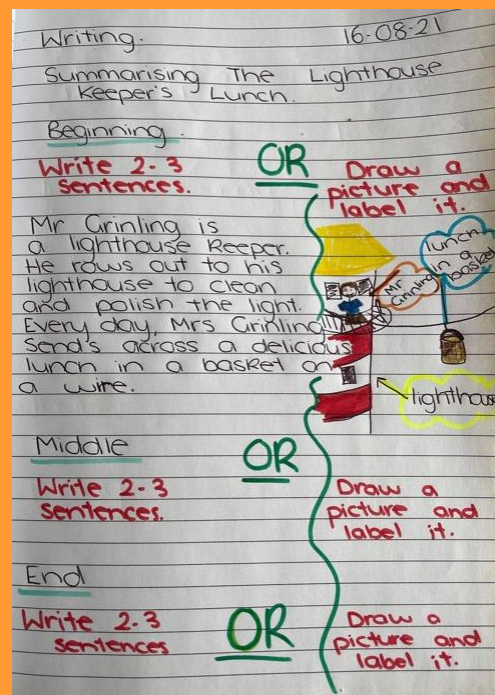 Writing. 16-08-21
Summarising The Lighthouse
Keeper's Lunch.
Beginning.
Write 2-3
sentences.
OR
Draw a
picture and
label it.
Mr Grinling is
a lighthouse keeper.
He rows out to his
lighthouse to clean
and polish the light.
Every day, Mrs Grinling
send's across a delicious
lunch in a basket on
a wire.
Mr
Grinling
lunch
in a
basket
lighthou
Middle
Write 2-3
sentences.
OR
Draw a
picture and
label it.
End
Write 2-3
sentences
OR
Draw a
picture and
label it.